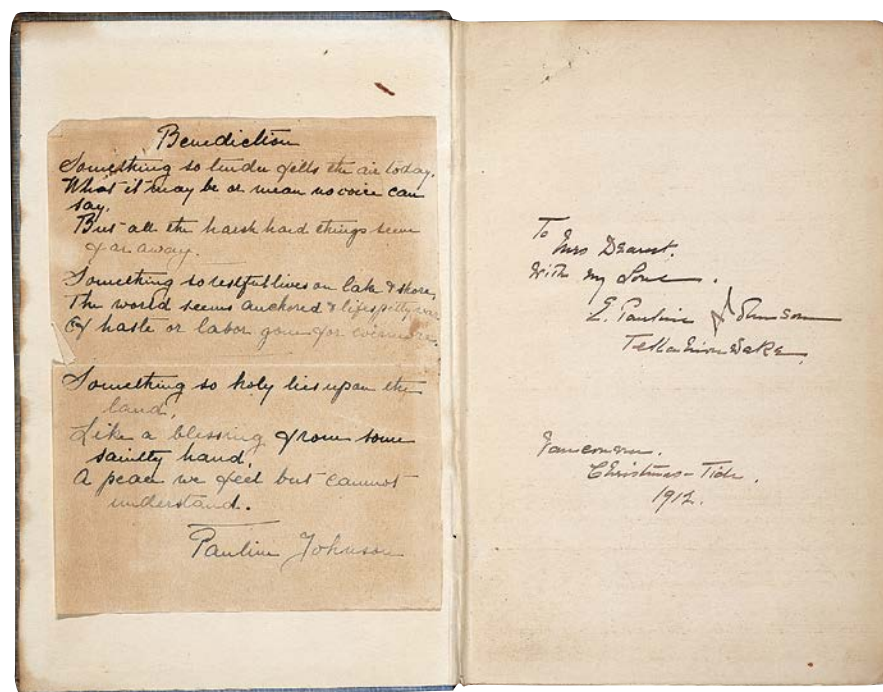 Benediction
Something so tender fills the air today,
What it may be or mean no voice can
say,
But all the harsh hard things seem
far away.
Something so restful lives on lake & shore,
The world seems anchored & life's petty war
Of haste or labor gone for evermore.
Something so holy lies upon the
land,
Like a blessing from some
saintly hand,
A peace we feel but cannot
understand.
Pauline Johnson
To
Mrs
With my Love.
E. Pauline Johnson
Tekahionwake
Vancouver.
Christmas-Tide.
1912.